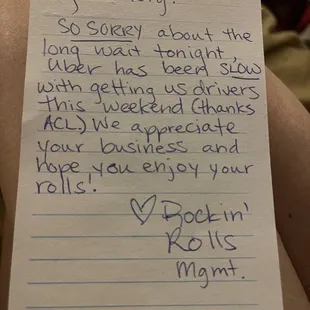 SO SORRY about the
long wait tonight,
Uber has been SLOW
with getting us drivers
this weekend (thanks
ACL.) We appreciate
your business and
hope you enjoy your
rolls!
♡ Bockin'
Rolls
Mgmt.